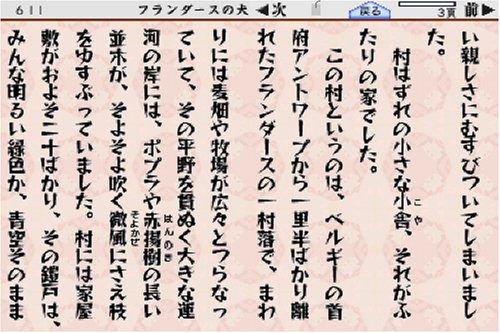 611
フランダースの犬
◀次
戻る
3頁
前▶
い親しさにむすびついてしまいまし
た。
村はずれの小さな小舎、それがふ
こや
たりの家でした。
この村というのは、ベルギーの首
府アントワープから一里半ばかり離
れたフランダースの一村落で、まわ
りには麦畑や牧場が広々とつらなっ
ていて、その平野を貫ぬく大きな運
河の岸には、ポプラや赤揚樹の長い
はんのき
並木が、そよそよ吹く微風にさえ枝
そよかぜ
をゆすぶっていました。村には家屋
敷がおよそ二十ばかり、その鎧戸は、
みんな明るい緑色か、青空そのまま